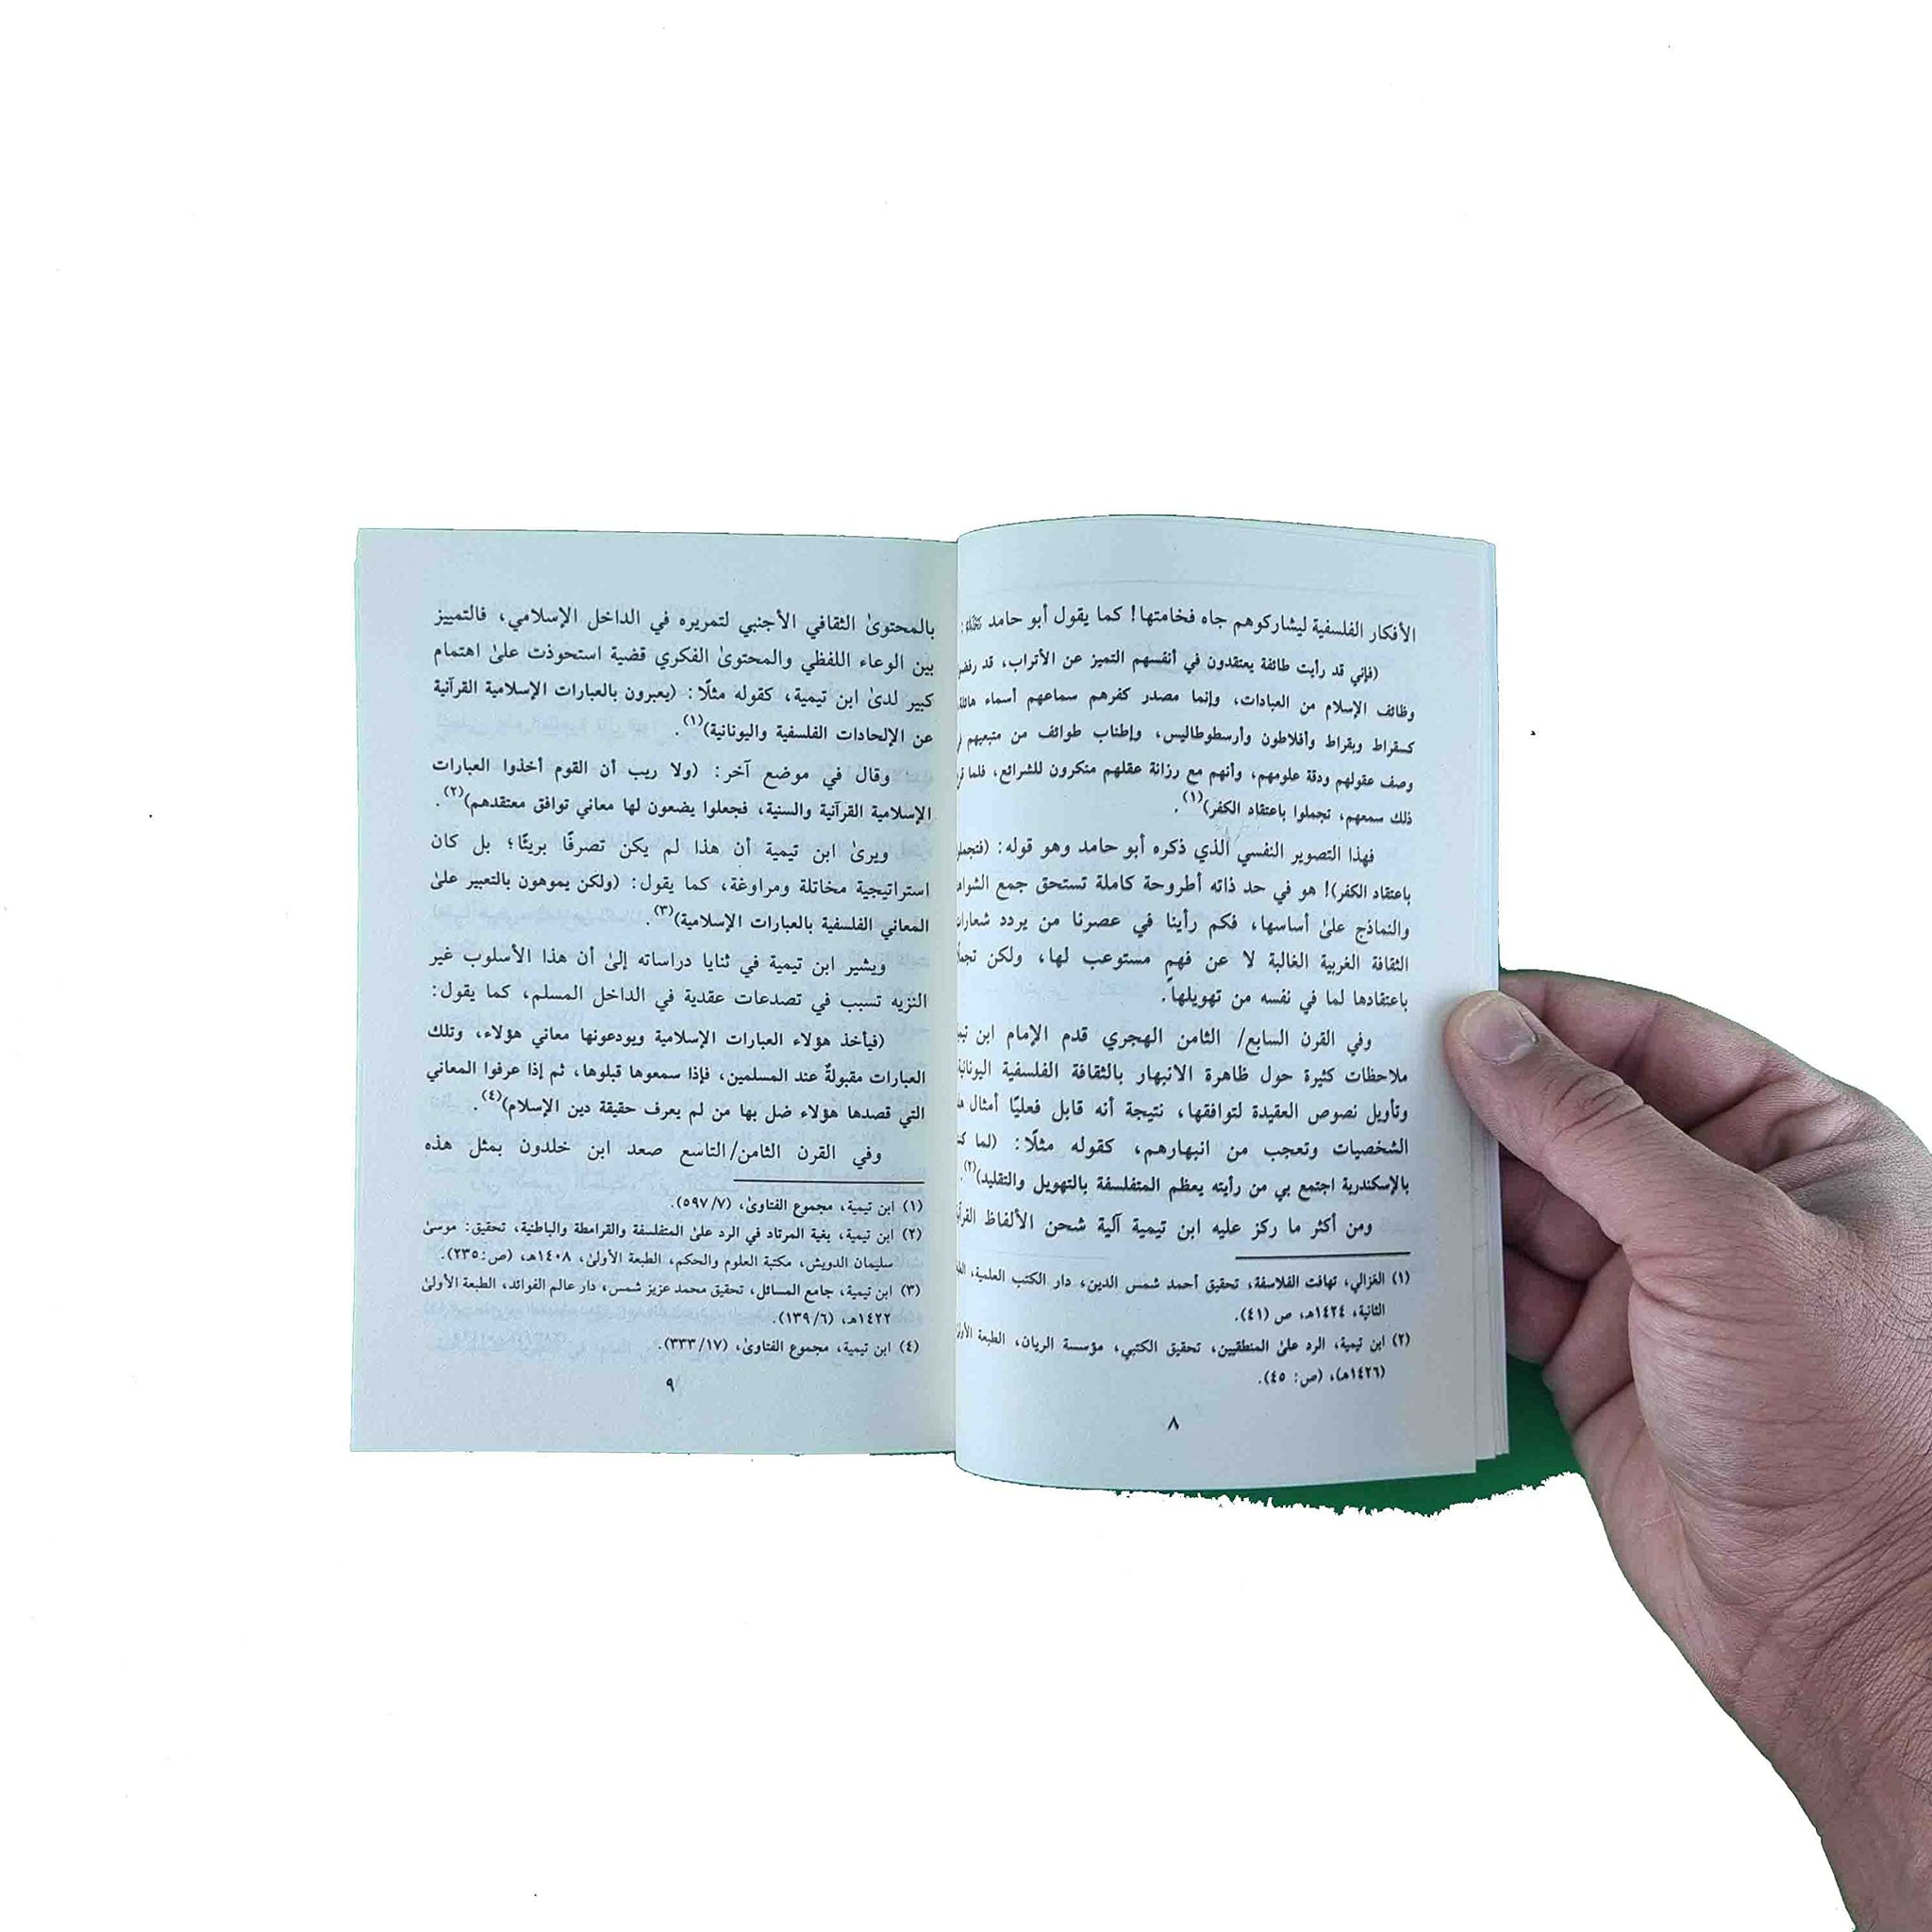 الأفكار الفلسفية ليشاركوهم جاه فخامتها! كما يقول أبو حامد :
(فإني قد رأيت طائفة يعتقدون في أنفسهم التميز عن الأتراب، قد
وظائف الإسلام من العبادات، وإنما مصدر كفرهم سماعهم أسماء
كسقراط وبقراط وأفلاطون وأرسطوطاليس، وإطناب طوائف من متبعيهم
وصف عقولهم ودقة علومهم، وأنهم مع رزانة عقلهم منكرون للشرائع، فلما
ذلك سمعهم، تجملوا باعتقاد الكفر)(١).
فهذا التصوير النفسي الذي ذكره أبو حامد وهو قوله:
باعتقاد الكفر)! هو في حد ذاته أطروحة كاملة تستحق جمع
والنماذج علىٰ أساسها، فكم رأينا في عصرنا من يردد
الثقافة الغربية الغالبة لا عن فهمٍ مستوعب لها، ولكن
باعتقادها لما في نفسه من تهويلها.
وفي القرن السابع/ الثامن الهجري قدم الإمام ابن
ملاحظات كثيرة حول ظاهرة الانبهار بالثقافة الفلسفية
وتأويل نصوص العقيدة لتوافقها، نتيجة أنه قابل فعليًا أمثال
الشخصيات وتعجب من انبهارهم، كقوله مثلًا: (لما
بالإسكندرية اجتمع بي من رأيته يعظم المتفلسفة بالتهويل والتقليد)(٢).
ومن أكثر ما ركز عليه ابن تيمية آلية شحن الألفاظ
(١) الغزالي، تهافت الفلاسفة، تحقيق أحمد شمس الدين، دار الكتب العلمية،
الثانية، ١٤٢٤هـ، ص (٤١).
(٢) ابن تيمية، الرد علىٰ المنطقيين، تحقيق الكتبي، مؤسسة الريان، الطبعة
(١٤٢٦هـ)، (ص: ٤٥).
٨
بالمحتوىٰ الثقافي الأجنبي لتمريره في الداخل الإسلامي، فالتمييز
بين الوعاء اللفظي والمحتوىٰ الفكري قضية استحوذت علىٰ اهتمام
كبير لدىٰ ابن تيمية، كقوله مثلًا: (يعبرون بالعبارات الإسلامية القرآنية
عن الإلحادات الفلسفية واليونانية)(١).
وقال في موضع آخر: (ولا ريب أن القوم أخذوا العبارات
الإسلامية القرآنية والسنية، فجعلوا يضعون لها معاني توافق معتقدهم)(٢).
ويرىٰ ابن تيمية أن هذا لم يكن تصرفًا بريئًا؛ بل كان
استراتيجية مخاتلة ومراوغة، كما يقول: (ولكن يموهون بالتعبير علىٰ
المعاني الفلسفية بالعبارات الإسلامية)(٣).
ويشير ابن تيمية في ثنايا دراساته إلىٰ أن هذا الأسلوب غير
النزيه تسبب في تصدعات عقدية في الداخل المسلم، كما يقول:
(فيأخذ هؤلاء العبارات الإسلامية ويودعونها معاني هؤلاء، وتلك
العبارات مقبولةٌ عند المسلمين، فإذا سمعوها قبلوها، ثم إذا عرفوا المعاني
التي قصدها هؤلاء ضل بها من لم يعرف حقيقة دين الإسلام)(٤).
وفي القرن الثامن/التاسع صعد ابن خلدون بمثل هذه
(١) ابن تيمية، مجموع الفتاوىٰ، (٥٩٧/٧).
(٢) ابن تيمية، بغية المرتاد في الرد علىٰ المتفلسفة والقرامطة والباطنية، تحقيق: موسىٰ
سليمان الدويش، مكتبة العلوم والحكم، الطبعة الأولىٰ، ١٤٠٨هـ، (ص:٢٣٥).
(٣) ابن تيمية، جامع المسائل، تحقيق محمد عزيز شمس، دار عالم الفوائد، الطبعة الأولىٰ
١٤٢٢هـ، (١٣٩/٦).
(٤) ابن تيمية، مجموع الفتاوىٰ، (٣٣٣/١٧).
٩